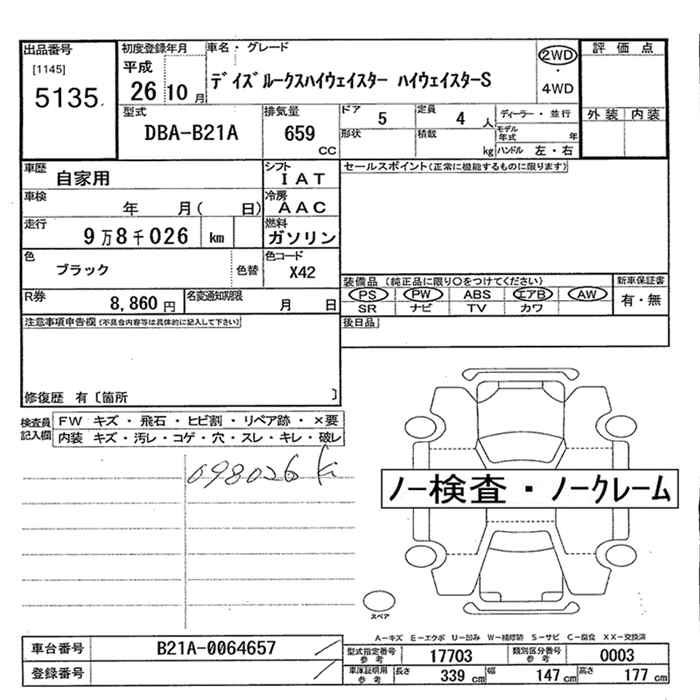 出品番号 初度登録年月 車名・グレード 評価点
[1145] 平成 2WD
5135 26 10月 デイズルークスハイウェイスター ハイウェイスターS ・ 4WD
型式 排気量 ドア 5 定員 4人 ディーラー・並行 外装 内装
DBA-B21A 659 CC 形状 積載 kg モデル年式 年 ハンドル 左・右
車歴 自家用 シフト IAT セールスポイント(正常に機能するものに限ります)
車検 年 月( 日) 冷房 AAC
走行 9万8千026 km 燃料 ガソリン
色 ブラック 色替 色コード X42
装備品 (純正品に限り○をつけてください) 新車保証書
PS PW ABS エアB AW 有・無
SR ナビ TV カワ
R券 8,860円 名変通知期限 月 日
後日品
注意事項申告欄(不具合内容等は具体的に記入して下さい)
修復歴 有〔箇所 〕
検査員記入欄 FW キズ・飛石・ヒビ割・リペア跡・×要
内装 キズ・汚レ・コゲ・穴・スレ・キレ・破レ
098026 km
ノー検査・ノークレーム
スペア
A-キズ E-エクボ U-凹み W-補修跡 S-サビ C-腐食 XX-交換済
車台番号 B21A-0064657 型式指定番号 参考 17703 類別区分番号 参考 0003
登録番号 車庫証明用 参考 長さ 339 cm 幅 147 cm 高さ 177 cm